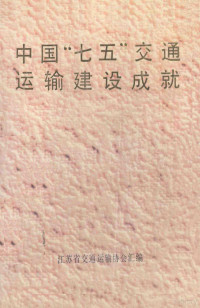 中国“七五”交通
运输建设成就
江苏省交通运输协会汇编